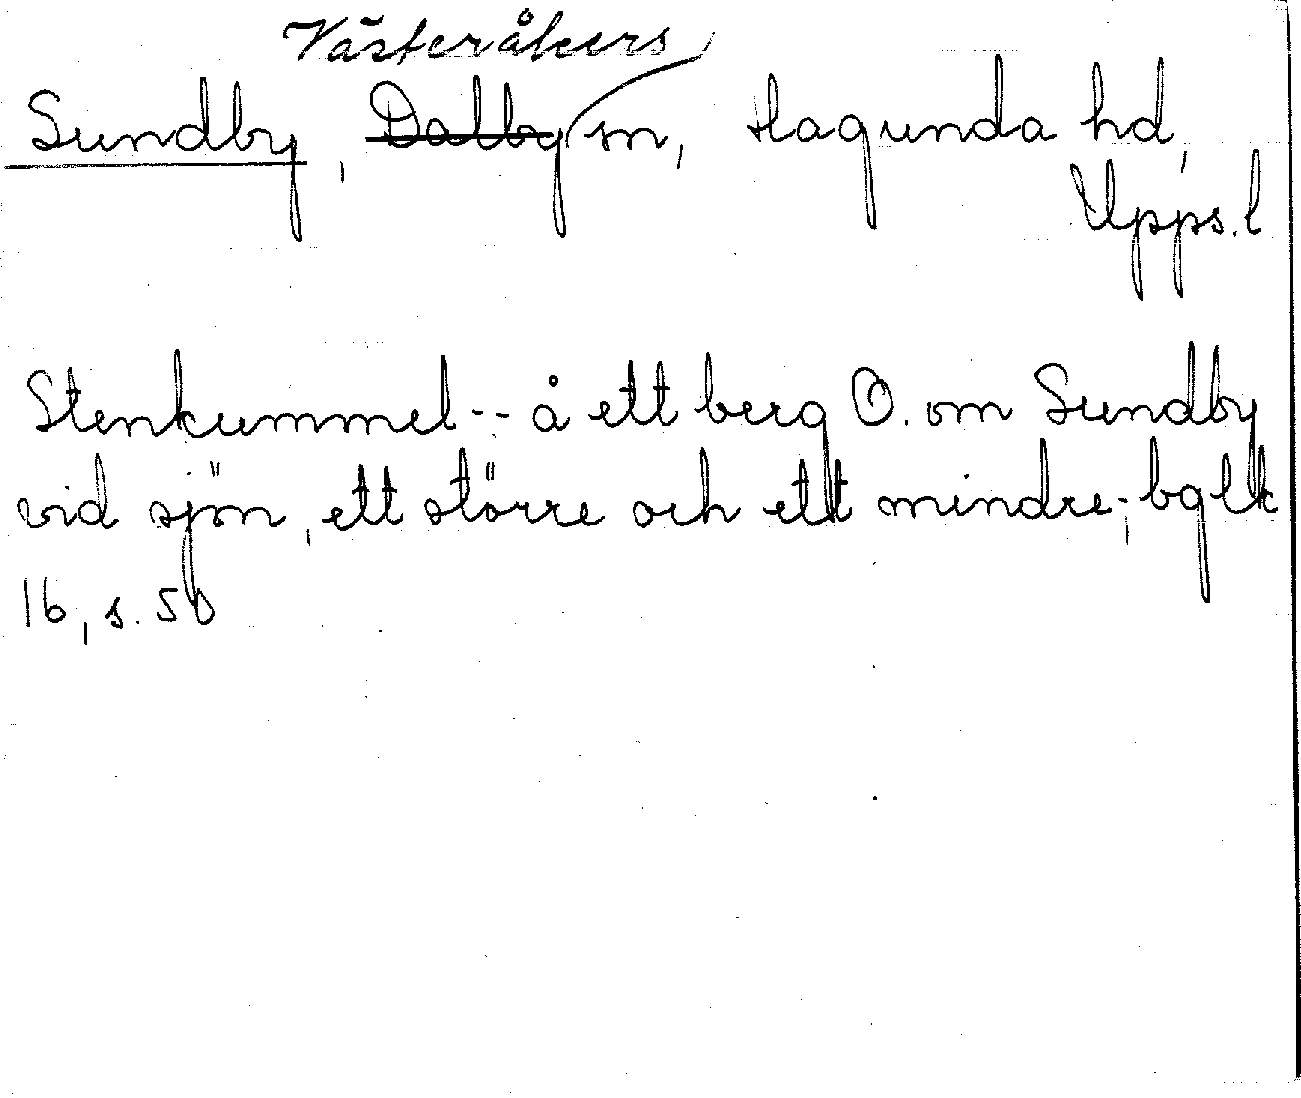 Västeråkers
Sundby, Dalby sn, Hagunda hd,
Upps. l
Stenkummel -- å ett berg O. om Sundby
vid sjön, ett större och ett mindre, -; bglk
16, s. 50